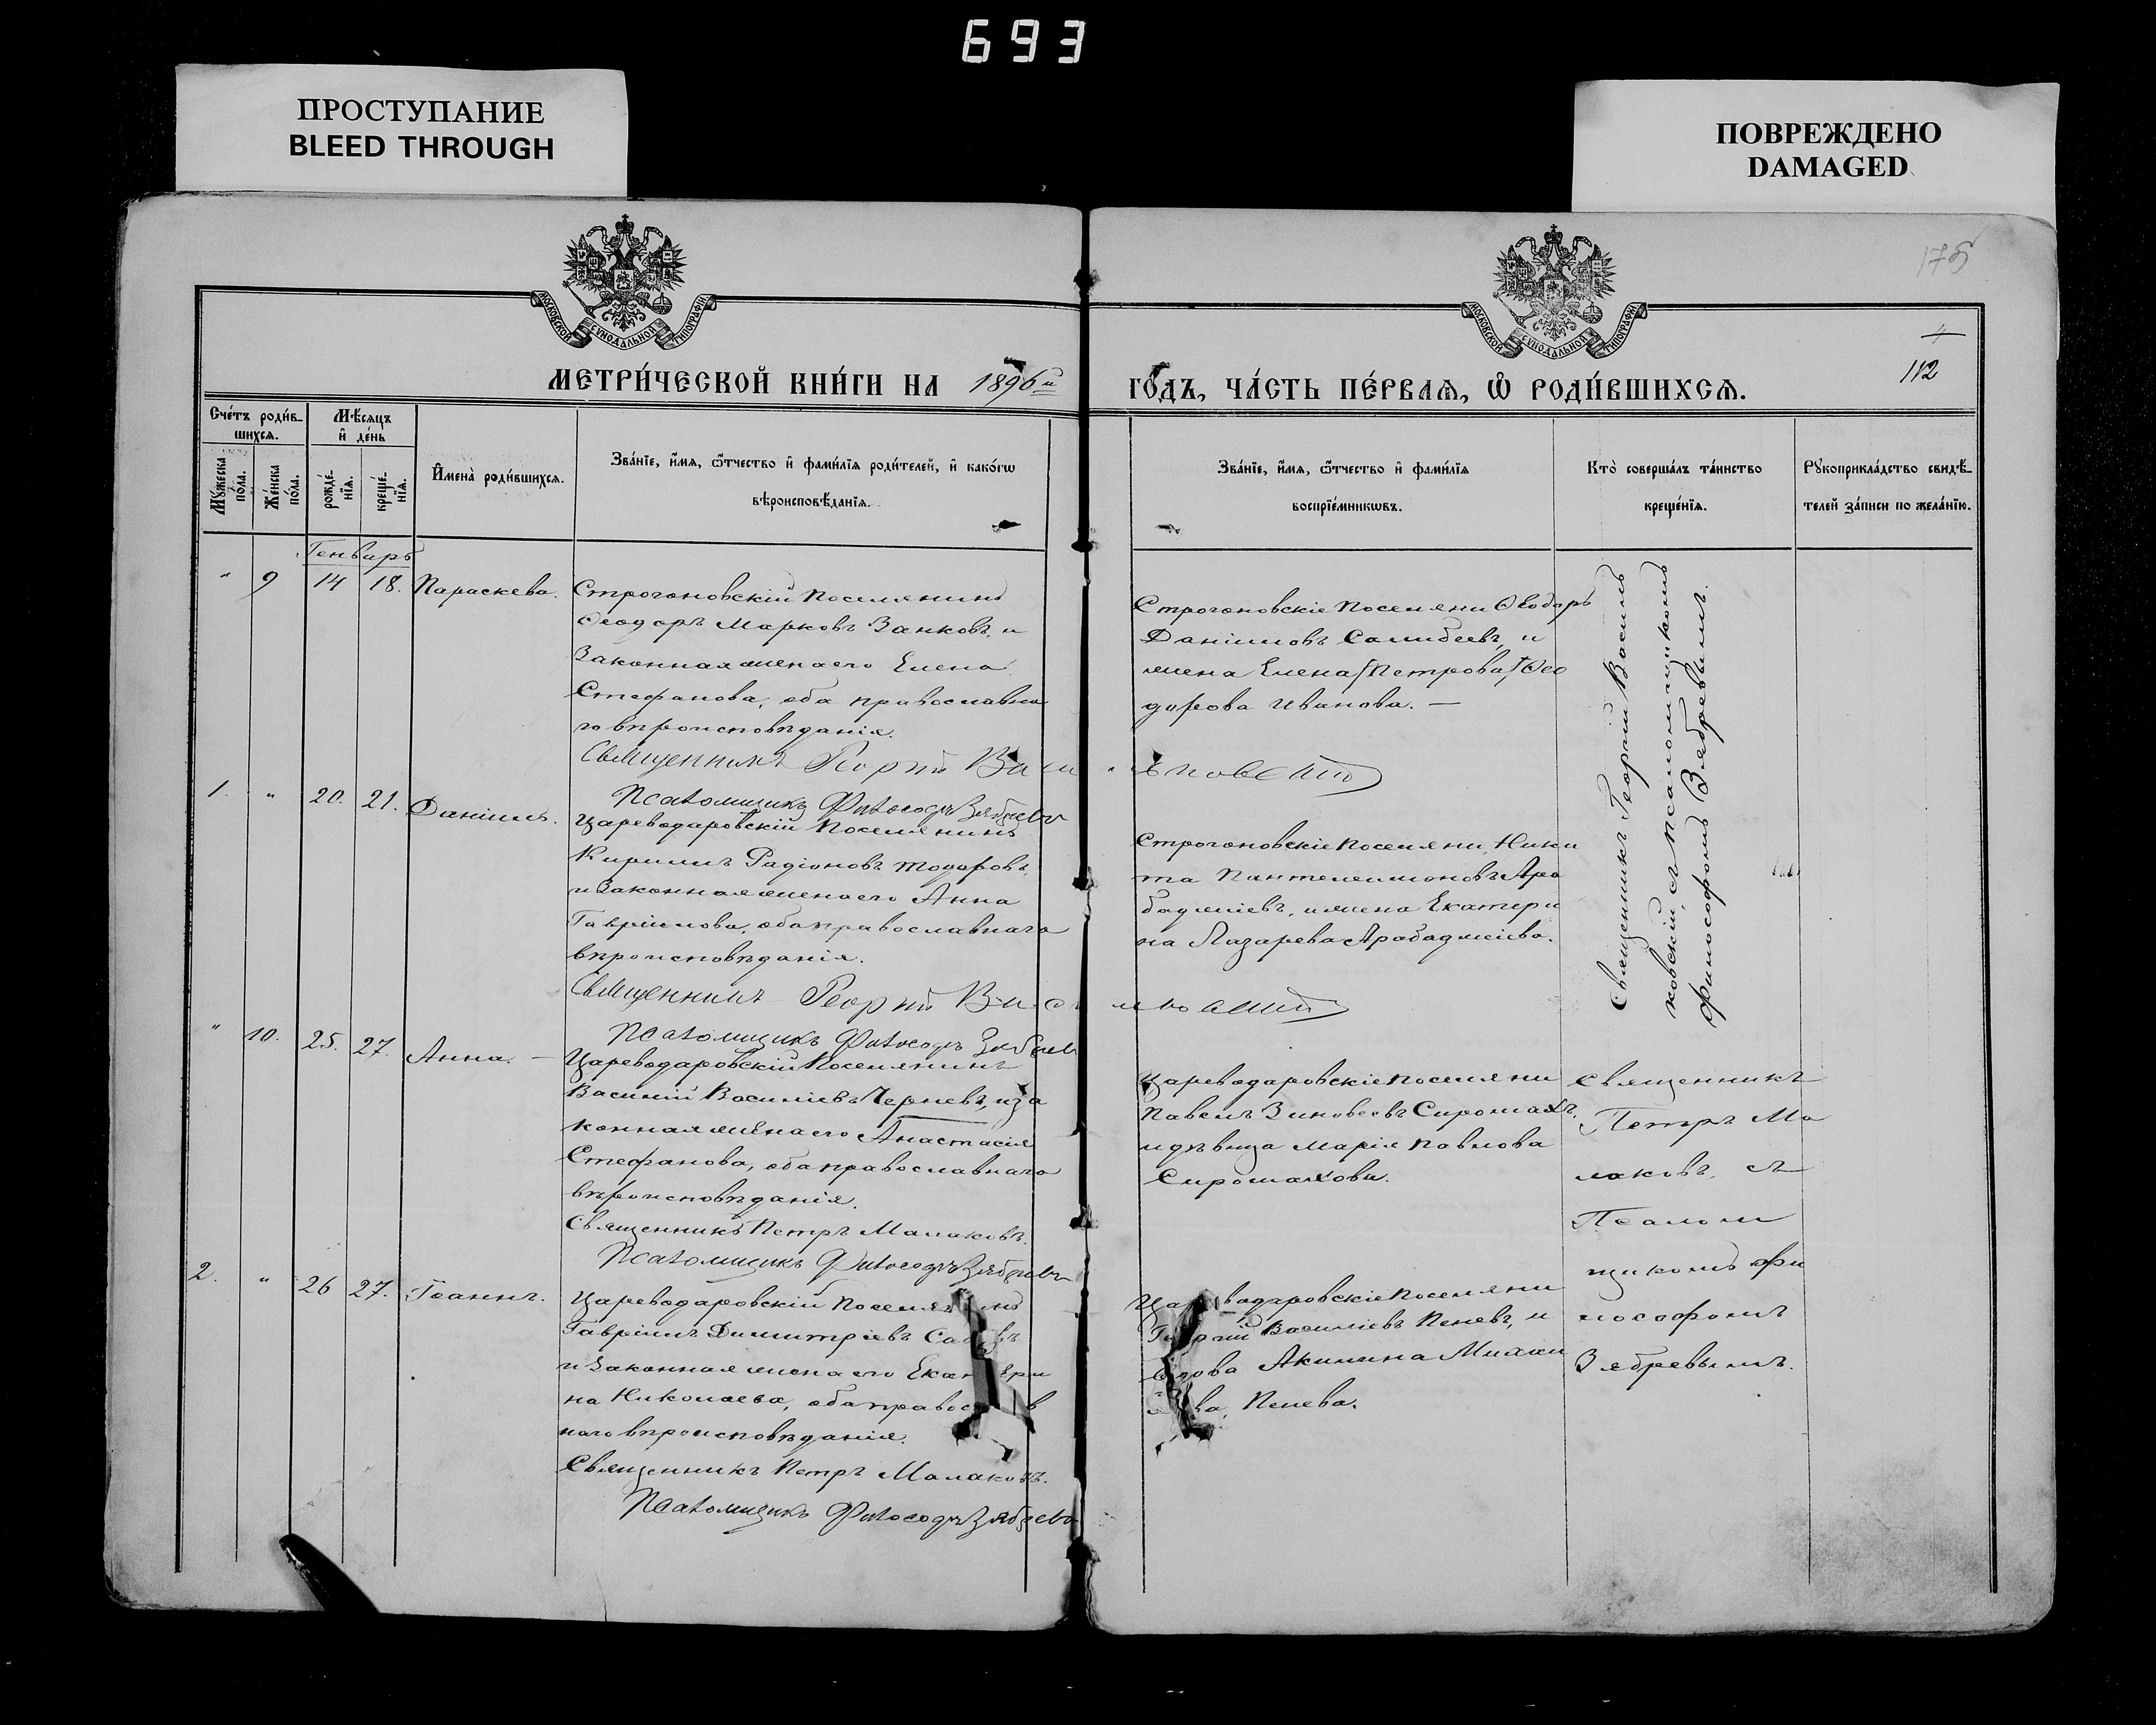 693
ПРОСТУПАНИЕ
BLEED THROUGH
ПОВРЕЖДЕНО
DAMAGED
175
112
МОСКОВСКОЙ СѴНОДАЛЬНОЙ ТИПОГРАФІИ
МОСКОВСКОЙ СѴНОДАЛЬНОЙ ТИПОГРАФІИ
МЕТРИ́ЧЕСКОЙ КНИ́ГИ НА 1896й ГО́ДЪ, ЧА́СТЬ ПЕ́РВАѦ, Ѿ РОДИ́ВШИХСѦ.
Сче́тъ роди́в-
шихсѧ.
Мꙋ́жеска по́ла.
Же́нска по́ла.
Мѣ́сѧцъ
и҆ де́нь
рожде́-
нїѧ.
креще́-
нїѧ.
И҆мена̀ роди́вшихсѧ.
Зва́нїе, и҆́мѧ, ѻ҆́тчество и҆ фами́лїѧ роди́телей, и҆ како́гѡ
вѣроисповѣ́данїѧ.
Зва́нїе, и҆́мѧ, ѻ҆́тчество и҆ фами́лїѧ
воспрїе́мникѡвъ.
Кто̀ соверша́лъ та́инство
креще́нїѧ.
Рꙋкоприкла́дство свидѣ́-
телей за́писи по жела́нїю.
Генварь
" 9 14 18. Параскева.
Строгановскій поселянинъ
Ѳеодоръ Марковъ Занковъ, и
законная жена его Елена
Стефанова, оба православна
го вѣроисповѣданія.
Священникъ Георгій Васильковскій
Псаломщикъ Философъ Зябревъ
Строгановскіе поселяни Ѳеодоръ
Даніиловъ Самибеевъ, и
жена Елена /Петрова/ Ѳео
дорова Иванова. —
Священникъ Георгій Василь
ковскій, съ псаломщикомъ
Философомъ Зябревымъ.
1. " 20. 21. Даніилъ.
Цареводаровскій поселянинъ
Кириллъ Радіоновъ Тодоровъ,
и законная жена его Анна
Гавріилова, оба православнаго
вѣроисповѣданія.
Священникъ Георгій Васильковскій
Псаломщикъ Философъ Зябревъ
Строгановскіе поселяни, Ники
та Пантелеимоновъ Ара
баджіевъ, и жена Екатери
на Лазарева Арабаджіева.
" 10. 25. 27. Анна. —
Цареводаровскій поселянинъ
Василій Василіевъ Черневъ, и за
конная жена его Анастасія
Стефанова, оба православнаго
вѣроисповѣданія.
Священникъ Петръ Малаковъ.
Псаломщикъ Философъ Зябревъ
Цареводаровскіе поселяни
Павелъ Зиновеевъ Сиромахъ,
и дѣвица Марія Павлова
Сиромахова.
Священникъ
Петръ Ма
лаковъ, съ
Псалом
щикомъ Фи
лософомъ
Зябревымъ.
2. " 26 27. Іоаннъ.
Цареводаровскій поселянинъ
Гавріилъ Димитріевъ
и законная жена его Екатери
на Николаева, оба православ
наго вѣроисповѣданія.
Священникъ Петръ Малаковъ.
Псаломщикъ Философъ Зябревъ
Цареводаровскіе поселяни
Георгій Василіевъ Пеневъ, и
вдова Акилина Михаи
лова Пенева.